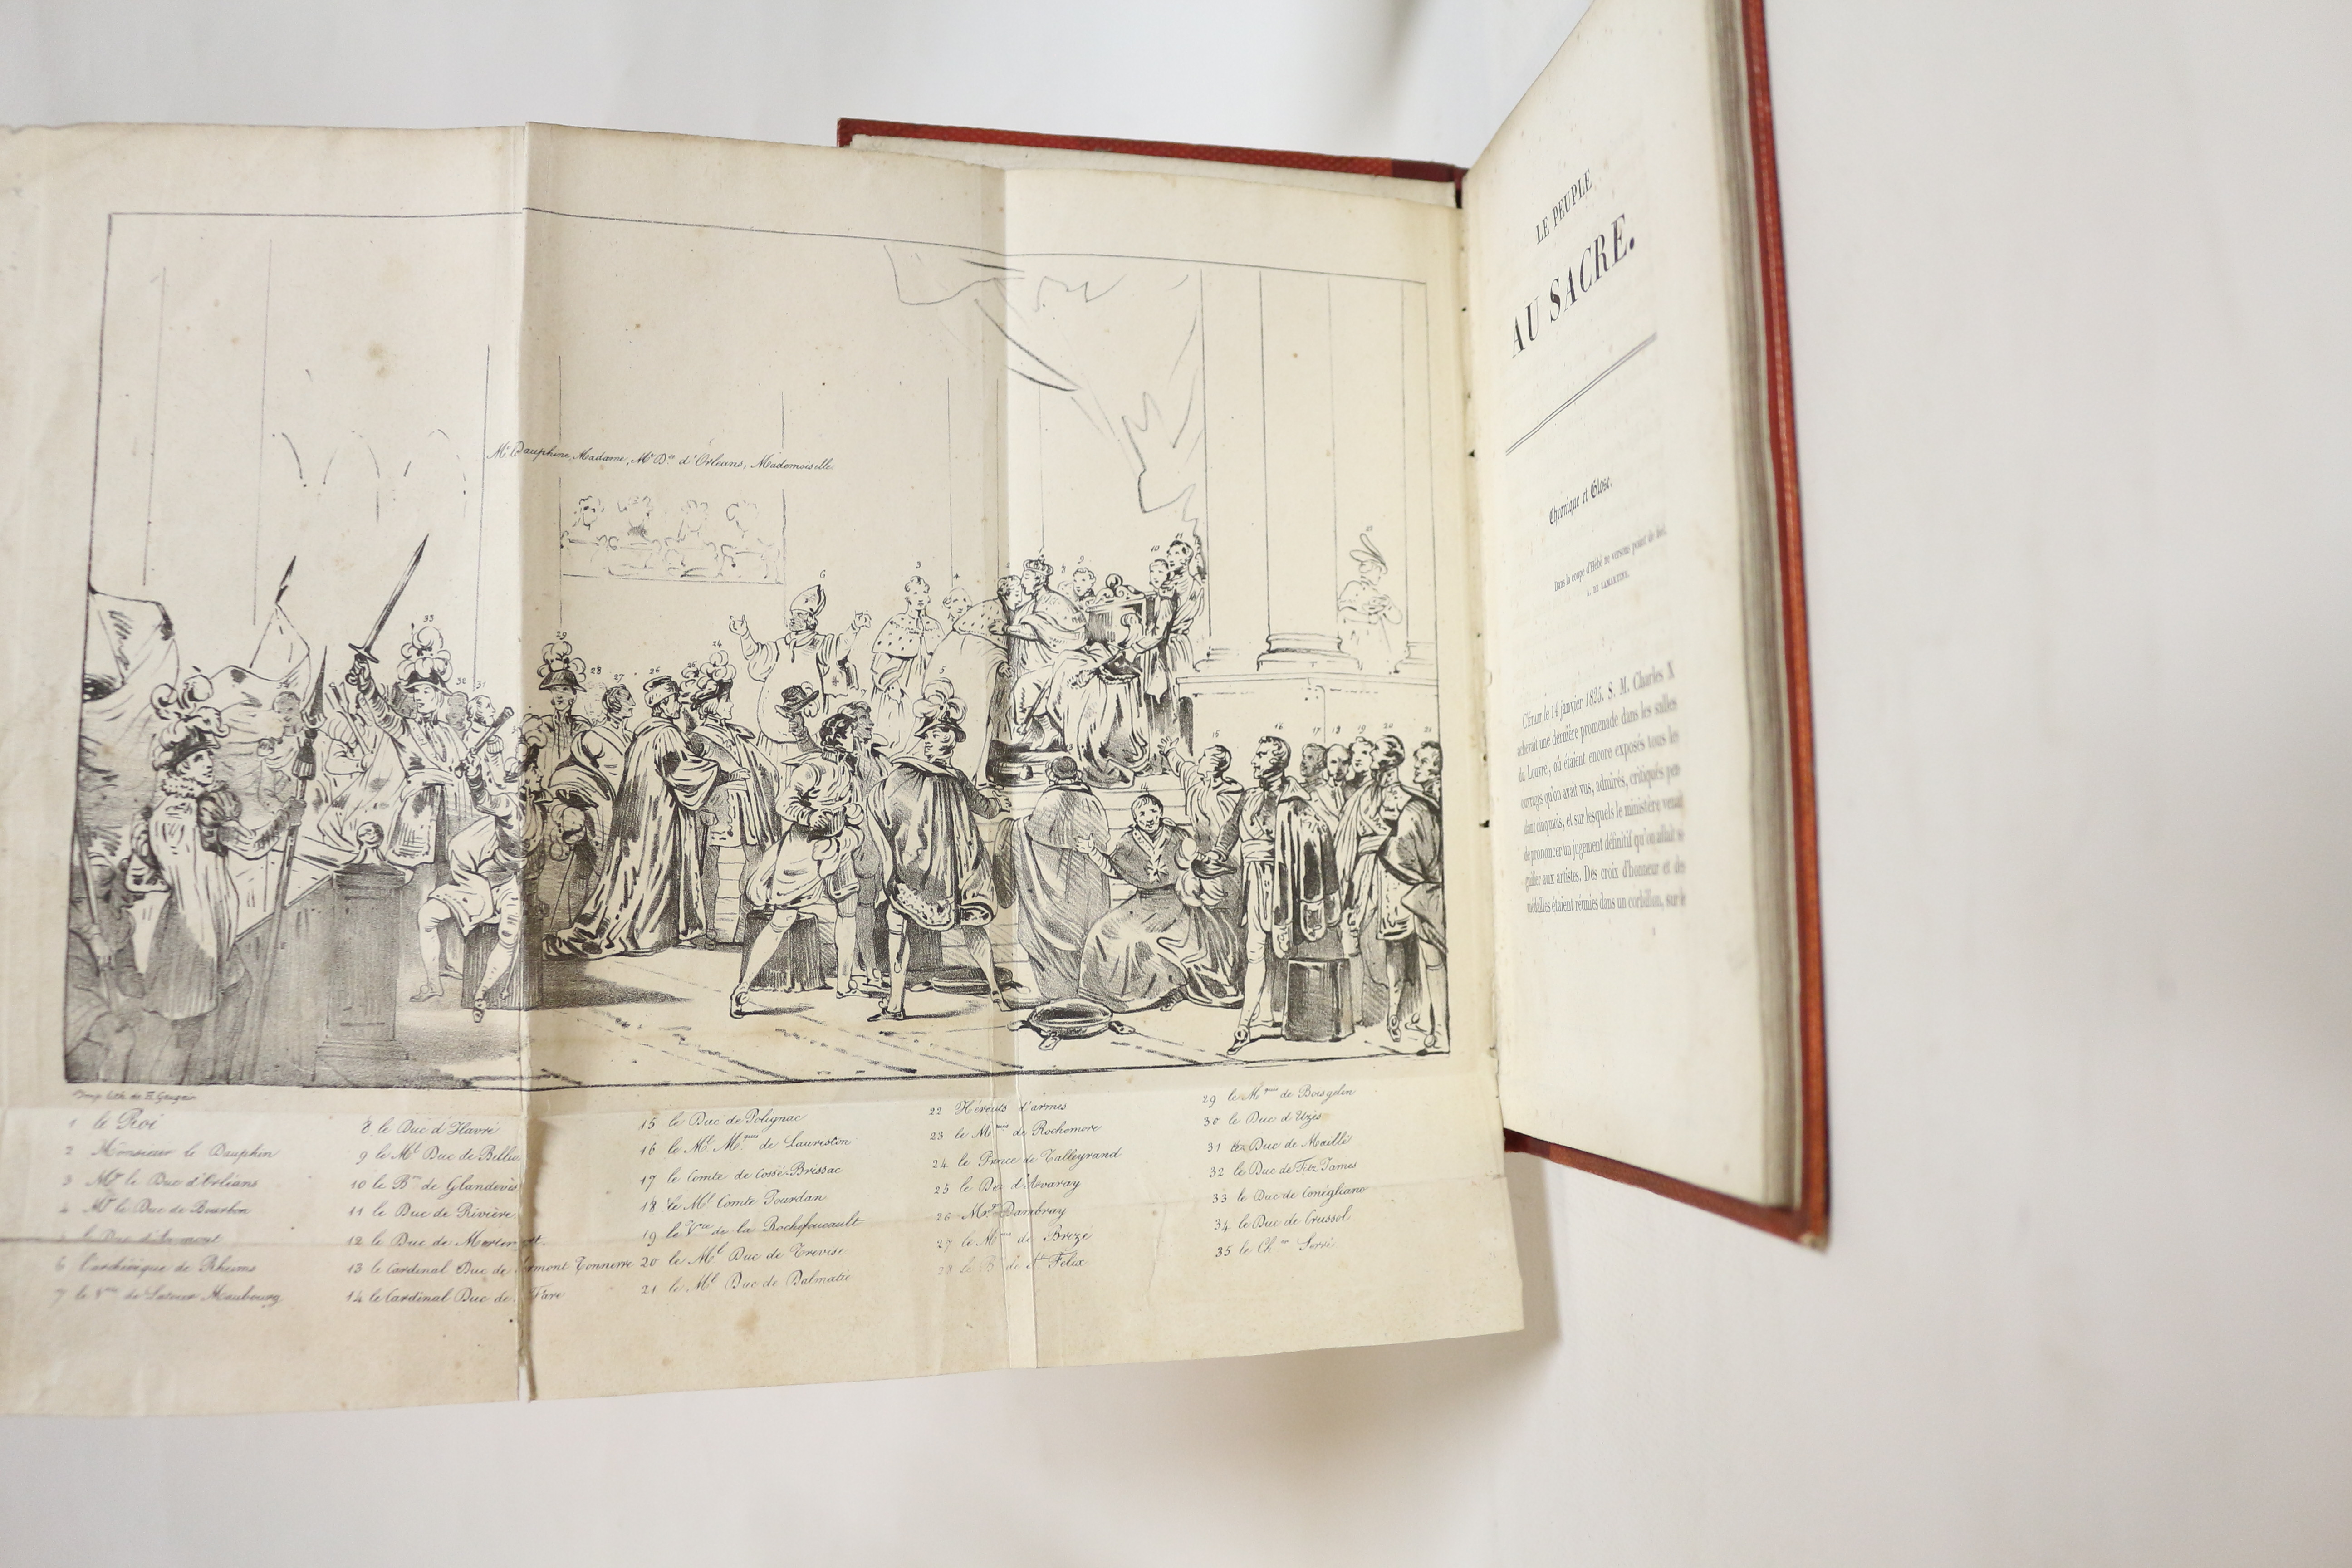 Mᵉ Dauphine, Madame, Mᵉ Dˢˢᵉ d'Orléans, Mademoiselle
Imp. lith. de H. Gaugain
1 le Roi
2 Monsieur le Dauphin
3 Mʳ le Duc d'Orléans
4 Mʳ le Duc de Bourbon
5 le Duc d'Aumont
6 l'archévêque de Rheims
7 le Vᵗᵉ de Latour Maubourg
8 le Duc d'Havré
9 le Mᵃˡ Duc de Bellu
10 le Bᵒⁿ de Glandevès
11 le Duc de Rivière
12 le Duc de Mortem
13 le Cardinal Duc de rmont Tonnerre
14 le Cardinal Duc de Fare
15 le Duc de Polignac
16 le Mᵃˡ Mᑫᵘⁱˢ de Lauriston
17 le Comte de Cossé-Brissac
18 le Mᵃˡ Comte Jourdan
19 le Vᵗᵉ de la Rochefoucault
20 le Mᵃˡ Duc de Trevise
21 le Mᵃˡ Duc de Dalmatie
22 Hérauts d'armes
23 le Mᑫᵘⁱˢ de Rochemore
24 le Prince de Talleyrand
25 le Duc d'Avaray
26 Mʳ Dambray
27 le Mᑫᵘⁱˢ de Brezé
28 le Bᵒⁿ de Sᵗ Felix
29 le Mᑫᵘⁱˢ de Boisgelin
30 le Duc d'Uzès
31 le Duc de Maillé
32 le Duc de Fitz James
33 le Duc de Conégliano
34 le Duc de Crussol
35 le Chᵉʳ Serri
LE PEUPLE
AU SACRE.
Chronique et Glose.
Dans la coupe d'Hébé ne versons point de fiel.
A. DE LAMARTINE.
C'ÉTAIT le 14 janvier 1825. S. M. Charles X
achevait une dernière promenade dans les salles
du Louvre, où étaient encore exposés tous les
ouvrages qu'on avait vus, admirés, critiqués pen-
dant cinq mois, et sur lesquels le ministère venait
de prononcer un jugement définitif qu'on allait si-
gnifier aux artistes. Des croix d'honneur et des
médailles étaient réunies dans un corbillon, sur le